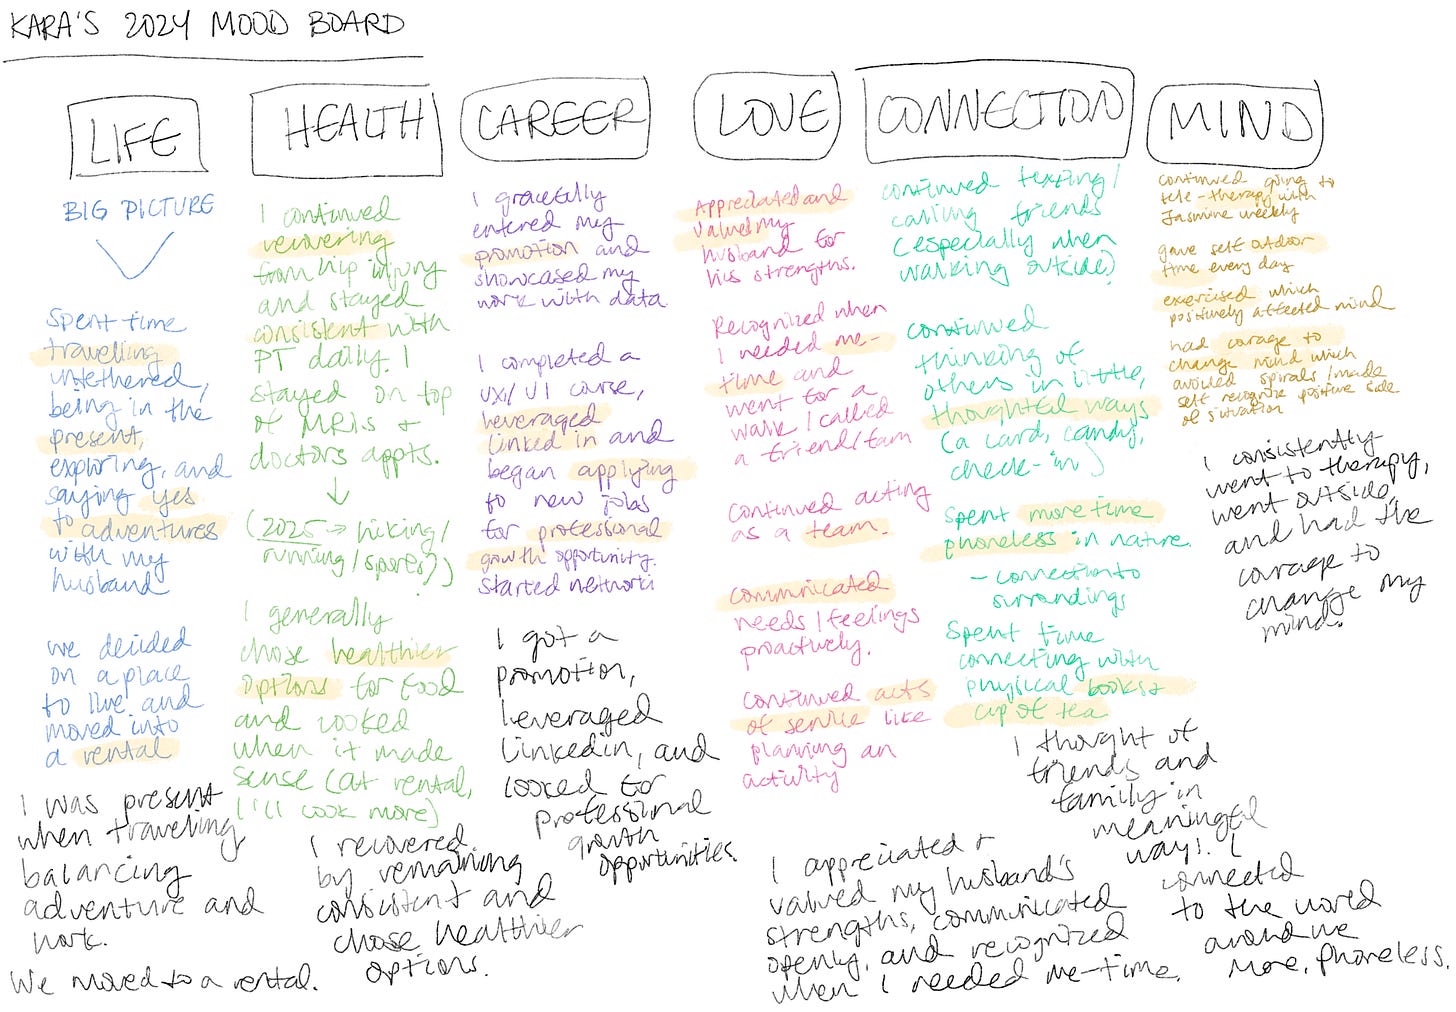 KARA'S 2024 MOOD BOARD
LIFE
BIG PICTURE
Spent time
travelling
untethered,
being in the
present,
exploring, and
saying yes
to adventures
with my
husband
we decided
on a place
to live and
moved into
a rental
I was present
when traveling
balancing
adventure and
work.
We moved to a rental.
HEALTH
I continued
recovering
from hip injury
and stayed
consistent with
PT daily. I
stayed on top
of MRIs +
doctors appts.
(2025 → hiking/
running/sports?)
I generally
chose healthier
options for food
and cooked
when it made
sense (at rental,
I'll cook more)
I recovered
by remaining
consistent and
chose healthier
options.
CAREER
I gracefully
entered my
promotion and
showcased my
work with data
I completed a
UX/UI course,
leveraged
linked in and
began applying
to new jobs
for professional
growth opportunity.
Started network
I got a
promotion,
leveraged
linkedin, and
looked for
professional
growth
opportunities.
LOVE
Appreciated and
valued my
husband for
his strengths.
Recognized when
I needed me-
time and
went for a
walk/called
a friend/fam
Continued acting
as a team.
Communicated
needs/feelings
proactively.
Continued acts
of service like
planning an
activity
I appreciated +
valued my husband's
strengths, communicated
openly, and recognized
when I needed me-time.
CONNECTION
continued texting/
calling friends
(especially when
walking outside)
continued
thinking of
others in little,
thoughtful ways
(a card, candy,
check-in)
Spent more time
phoneless in nature.
- connection to
surroundings
Spent time
connecting with
physical books +
cup of tea
I thought of
friends and
family in
meaningful
ways. I
connected
to the world
around me
more, phoneless.
MIND
continued going to
tele-therapy with
Jasmine weekly
gave self outdoor
time every day
exercised which
positively affected mind
had courage to
change mind which
avoided spirals/made
self recognize positive side
of situation
I consistently
went to therapy,
went outside,
and had the
courage to
change my
mind.